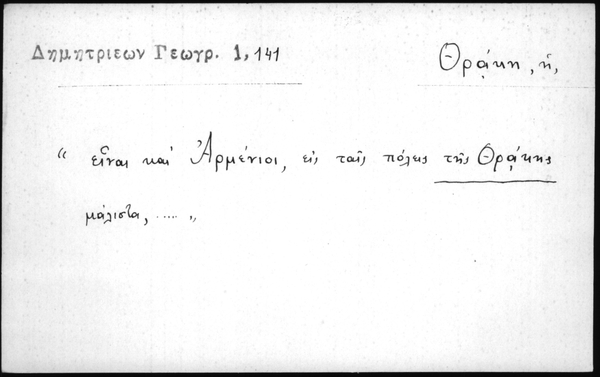 Δημητριεων Γεωγρ. 1, 141
Θρᾴκη, ἡ,
“ εἶναι καὶ Ἀρμένιοι, εἰς ταῖς πόλεις τῆς Θρᾴκης
μάλιστα, ..... „